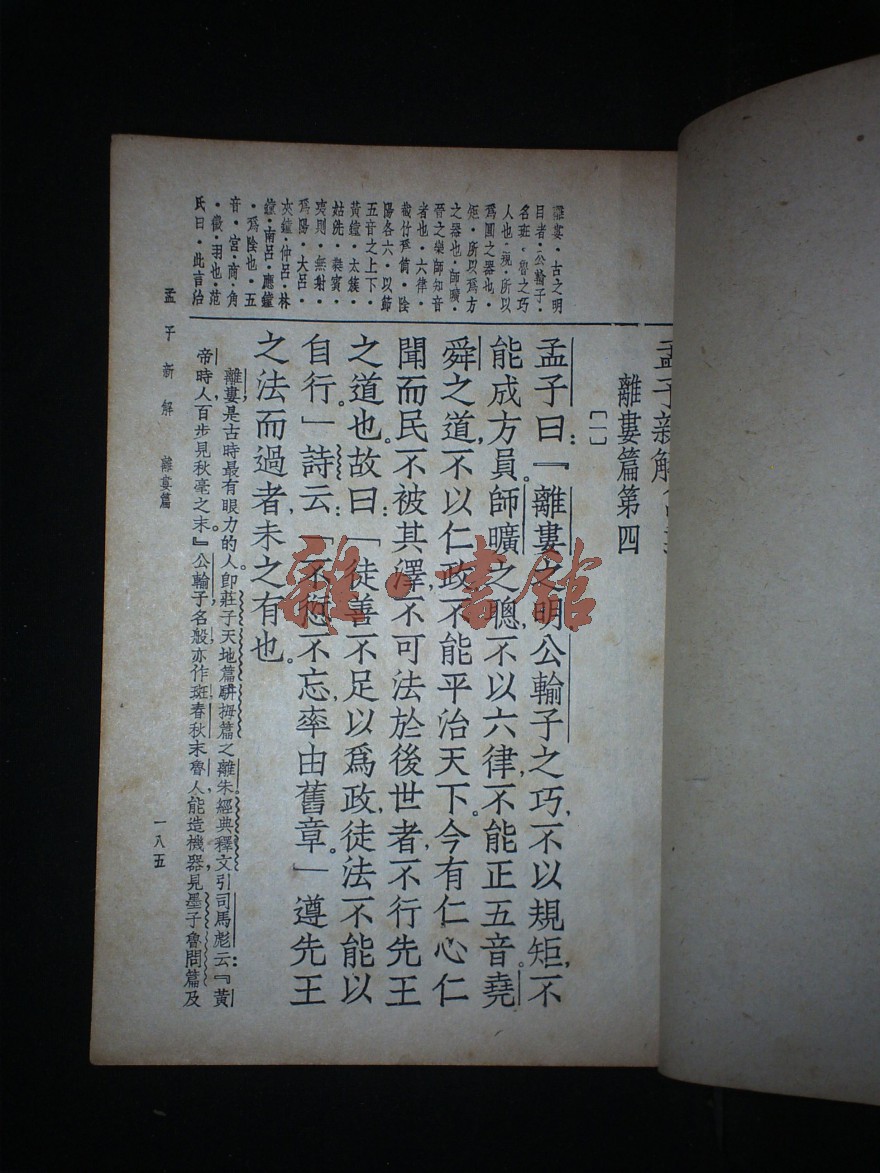 孟子新解
離婁篇第四
〔一〕
離婁·古之明
目者·公輸子·
名班·魯之巧
人也·規·所以
爲圓之器也·
矩·所以爲方
之器也·師曠·
晉之樂師知音
者也·六律·
截竹爲筩·陰
陽各六·以節
五音之上下·
黃鐘·太簇·
姑洗·蕤賓·
夷則·無射·
爲陽·大呂·
夾鐘·仲呂·林
鐘·南呂·應鐘
·爲陰也·五
音·宮·商·角
·徵·羽也·范
氏曰·此言治
孟子曰：『離婁之明，公輸子之巧，不以規矩，不
能成方員。師曠之聰，不以六律，不能正五音。堯
舜之道，不以仁政，不能平治天下。今有仁心仁
聞而民不被其澤，不可法於後世者，不行先王
之道也。故曰：「徒善不足以爲政，徒法不能以
自行」詩云：「不愆不忘，率由舊章。」遵先王
之法而過者，未之有也。
離婁，是古時最有眼力的人。即莊子天地篇駢拇篇之離朱，經典釋文引司馬彪云：『黃
帝時人，百步見秋毫之末。』公輸子，名般，亦作班，春秋末魯人，能造機器，見墨子魯問篇及
孟子新解　離婁篇
一八五
雜·書館